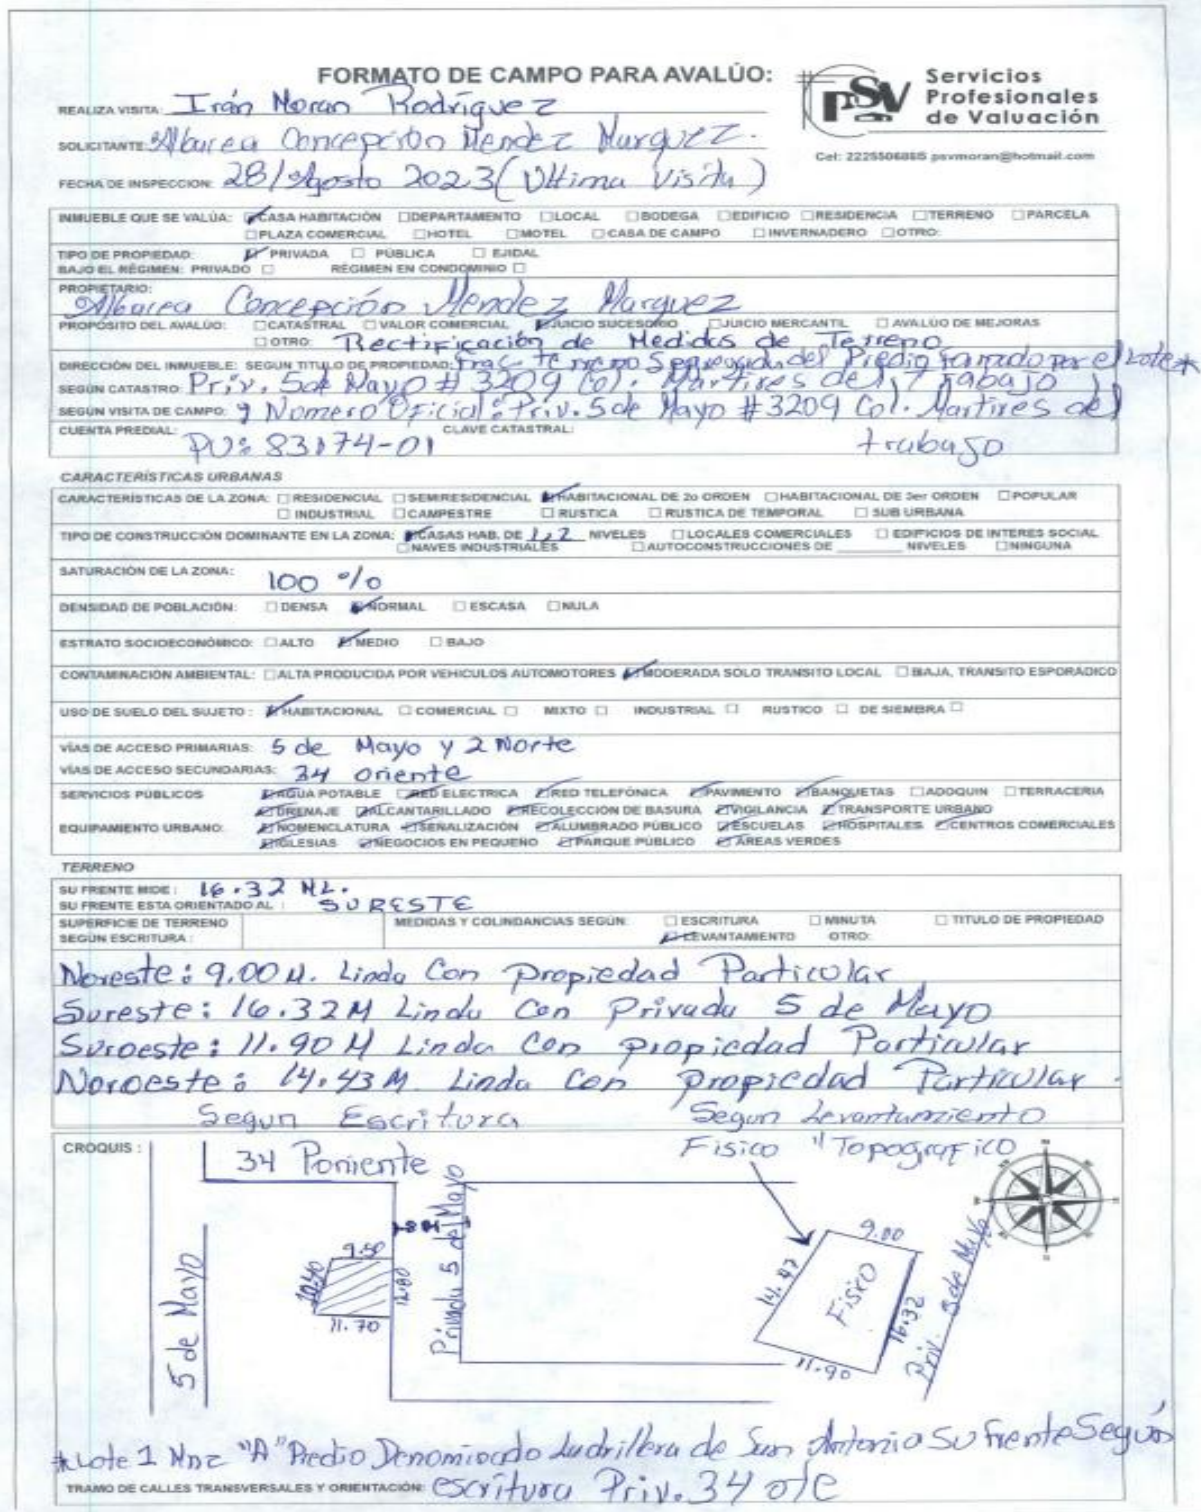 FORMATO DE CAMPO PARA AVALÚO:
PSV Servicios
Profesionales
de Valuación
Cel: 2225506885 psvmoran@hotmail.com
REALIZA VISITA: Irán Moran Rodríguez
SOLICITANTE: Albarea Concepción Mendez Marquez.
FECHA DE INSPECCION: 28/Agosto 2023 (Ultima Visita)
INMUEBLE QUE SE VALÚA: CASA HABITACIÓN DEPARTAMENTO LOCAL BODEGA EDIFICIO RESIDENCIA TERRENO PARCELA
PLAZA COMERCIAL HOTEL MOTEL CASA DE CAMPO INVERNADERO OTRO:
TIPO DE PROPIEDAD: PRIVADA PÚBLICA EJIDAL
BAJO EL RÉGIMEN: PRIVADO RÉGIMEN EN CONDOMINIO
PROPIETARIO:
Albarea Concepción Mendez Marquez
PROPOSITO DEL AVALÚO: CATASTRAL VALOR COMERCIAL JUICIO SUCESORIO JUICIO MERCANTIL AVALUO DE MEJORAS
OTRO: Rectificación de Medidas de Terreno
DIRECCIÓN DEL INMUEBLE: SEGÚN TITULO DE PROPIEDAD: Frac. terreno Segregada del Predio Formado por el Lote*
SEGÚN CATASTRO: Priv. 5 de Mayo # 3209 Col. Martires del Trabajo
SEGÚN VISITA DE CAMPO: y Nomero Oficial: Priv. 5 de Mayo #3209 Col. Martires del
trabajo
CUENTA PREDIAL: PU: 83174-01 CLAVE CATASTRAL:
CARACTERÍSTICAS URBANAS
CARACTERÍSTICAS DE LA ZONA: RESIDENCIAL SEMIRESIDENCIAL HABITACIONAL DE 2o ORDEN HABITACIONAL DE 3er ORDEN POPULAR
INDUSTRIAL CAMPESTRE RUSTICA RUSTICA DE TEMPORAL SUB URBANA
TIPO DE CONSTRUCCIÓN DOMINANTE EN LA ZONA: CASAS HAB. DE 1, 2 NIVELES LOCALES COMERCIALES EDIFICIOS DE INTERES SOCIAL
NAVES INDUSTRIALES AUTOCONSTRUCCIONES DE ____ NIVELES NINGUNA
SATURACIÓN DE LA ZONA: 100 %
DENSIDAD DE POBLACIÓN: DENSA NORMAL ESCASA NULA
ESTRATO SOCIOECONÓMICO: ALTO MEDIO BAJO
CONTAMINACIÓN AMBIENTAL: ALTA PRODUCIDA POR VEHICULOS AUTOMOTORES MODERADA SOLO TRANSITO LOCAL BAJA, TRANSITO ESPORÁDICO
USO DE SUELO DEL SUJETO: HABITACIONAL COMERCIAL MIXTO INDUSTRIAL RUSTICO DE SIEMBRA
VÍAS DE ACCESO PRIMARIAS: 5 de Mayo y 2 Norte
VÍAS DE ACCESO SECUNDARIAS: 34 oriente
SERVICIOS PÚBLICOS AGUA POTABLE RED ELECTRICA RED TELEFÓNICA PAVIMENTO BANQUETAS ADOQUIN TERRACERIA
DRENAJE ALCANTARILLADO RECOLECCIÓN DE BASURA VIGILANCIA TRANSPORTE URBANO
EQUIPAMIENTO URBANO: NOMENCLATURA SEÑALIZACIÓN ALUMBRADO PÚBLICO ESCUELAS HOSPITALES CENTROS COMERCIALES
IGLESIAS NEGOCIOS EN PEQUEÑO PARQUE PÚBLICO AREAS VERDES
TERRENO
SU FRENTE MIDE: 16.32 ML.
SU FRENTE ESTA ORIENTADO AL: SURESTE
SUPERFICIE DE TERRENO MEDIDAS Y COLINDANCIAS SEGÚN: ESCRITURA MINUTA TITULO DE PROPIEDAD
SEGÚN ESCRITURA: LEVANTAMIENTO OTRO:
Noreste: 9.00 M. Linda Con Propiedad Particular
Sureste: 16.32 M Linda Con Privada 5 de Mayo
Suroeste: 11.90 M Linda Con propiedad Particular
Noroeste: 14.43 M. Linda Con propiedad Particular.
Segun Escritura
Segun Levantamiento
Fisico "Topografico
CROQUIS:
34 Poniente
5 de Mayo
Privada 5 de Mayo
9.50
12.80
11.70
9.00
Fisico
16.32
11.90
Priv. 5 de Mayo
*Lote 1 Mnz "A" Predio Denominado Ladrillera de San Antonio Su frente Según
TRAMO DE CALLES TRANSVERSALES Y ORIENTACIÓN: escritura Priv. 34 ote